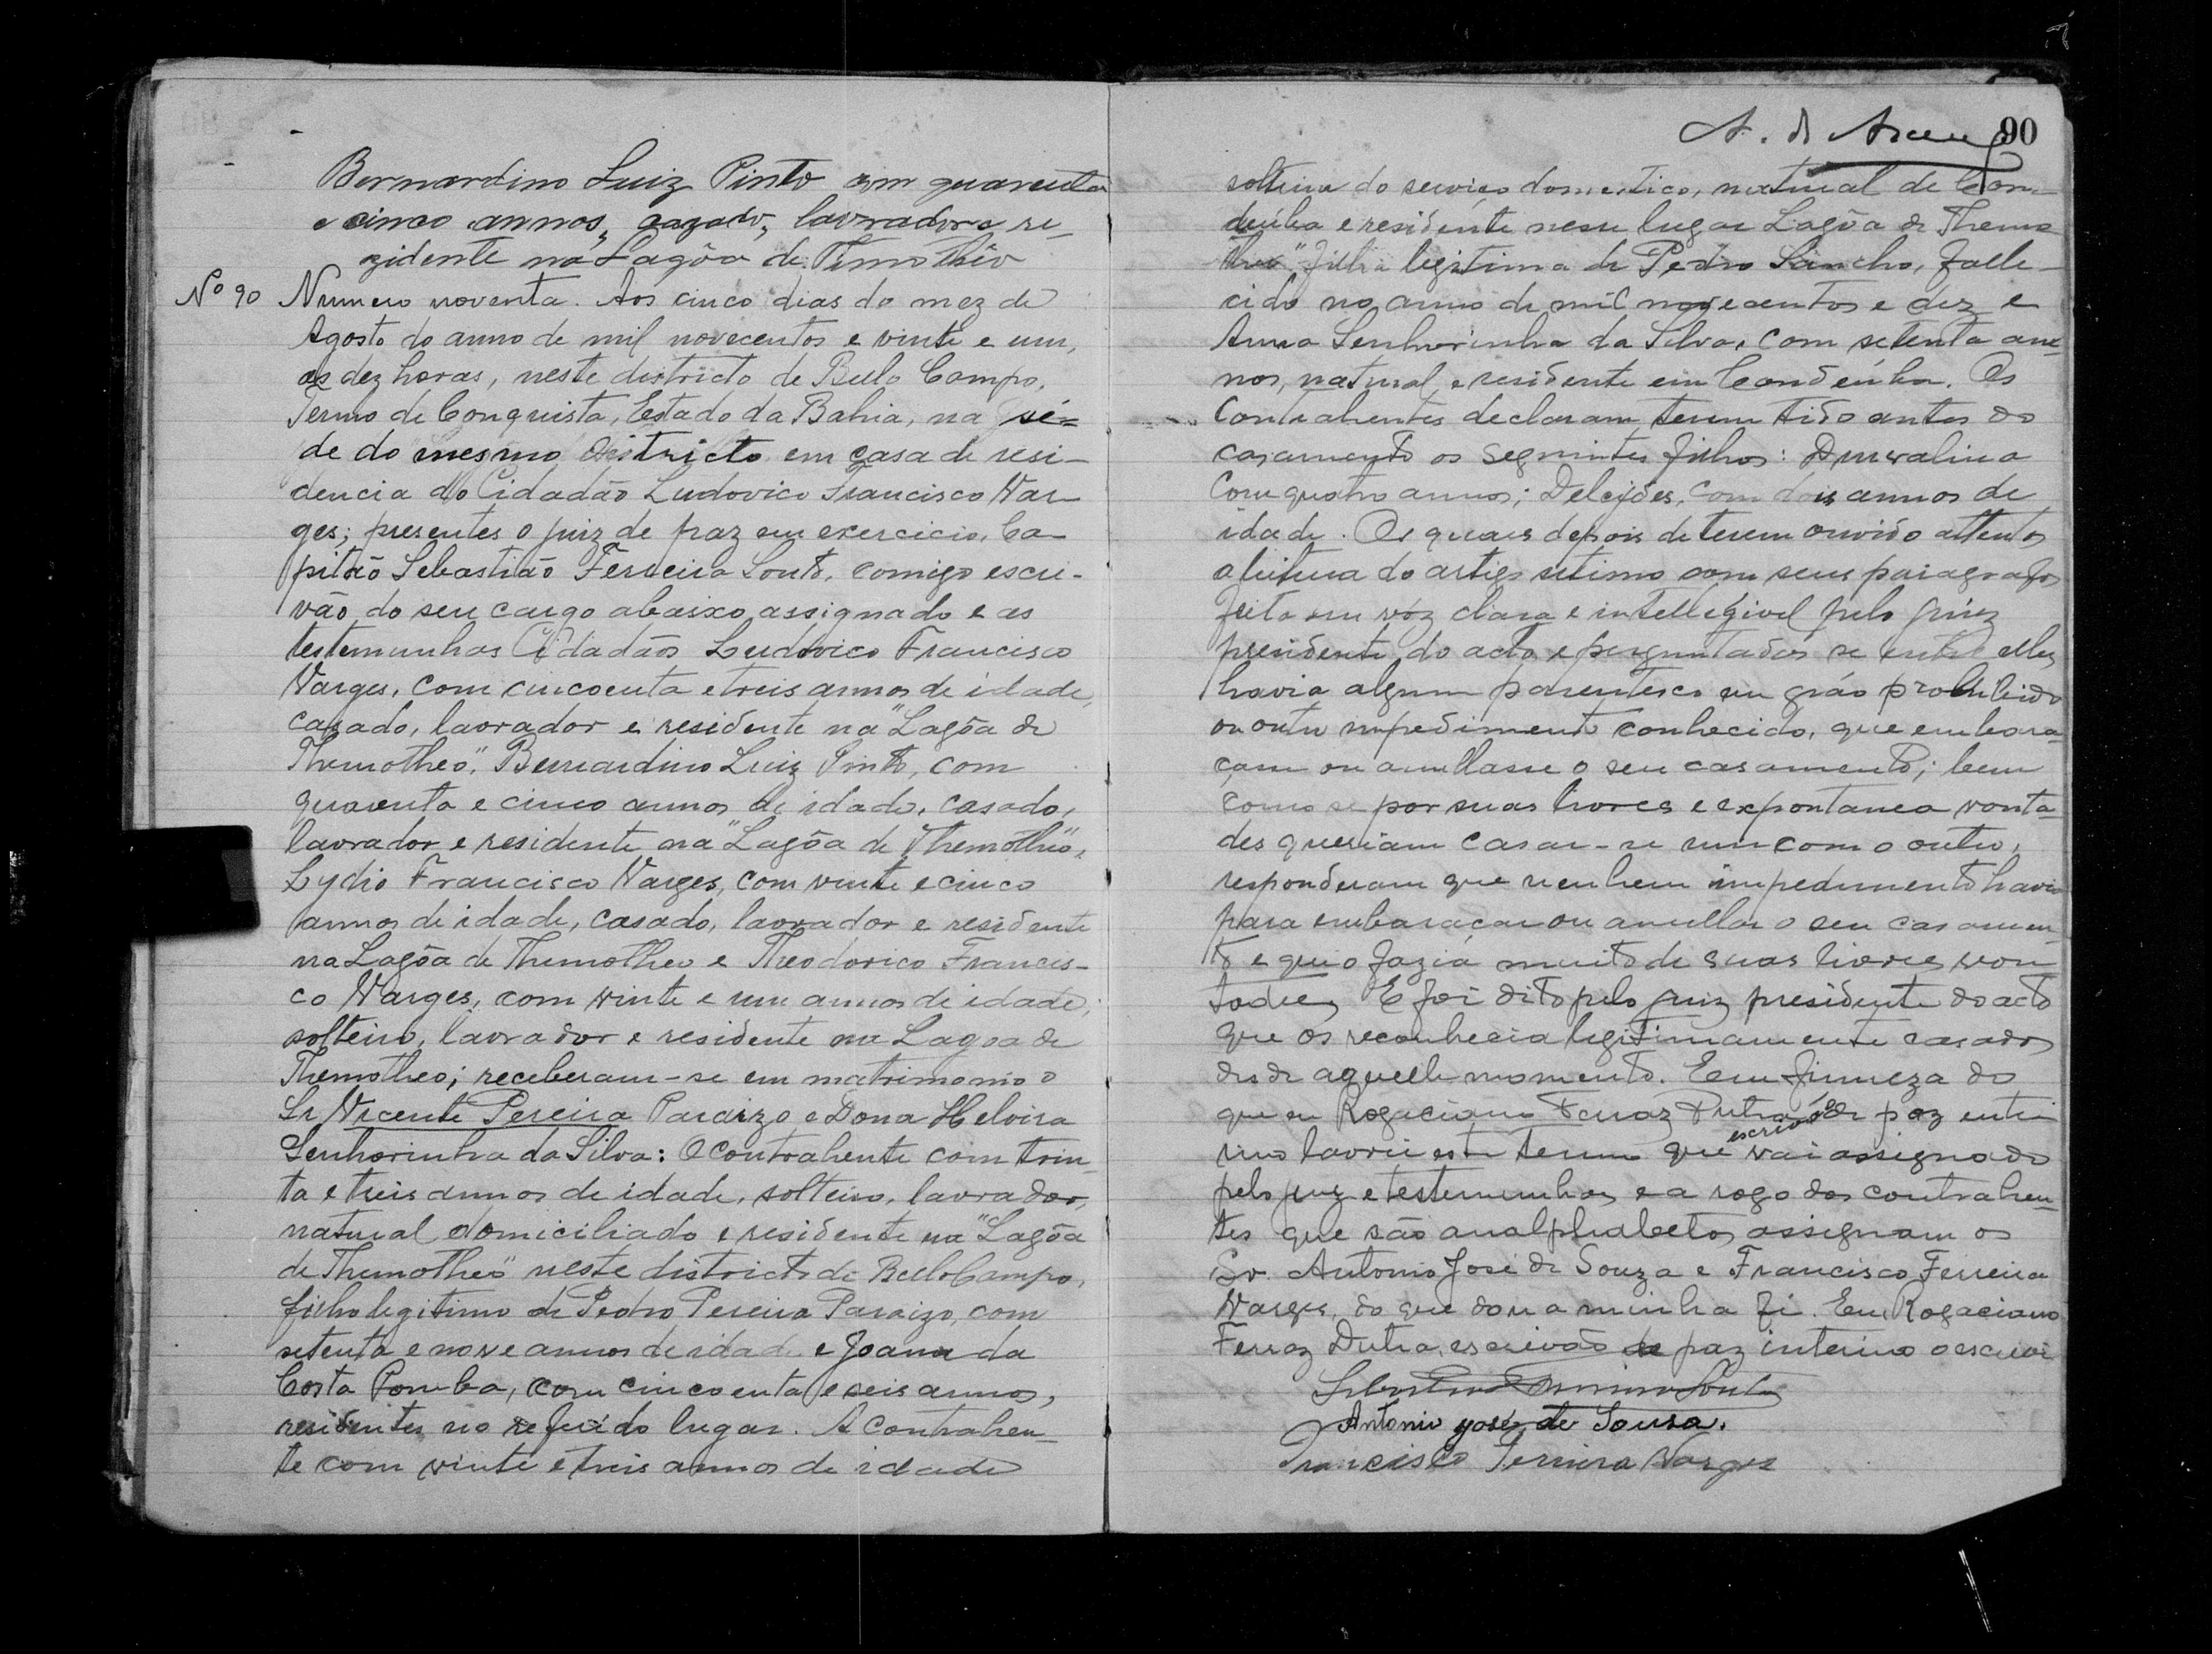 Bernardino Luiz Pinto com quarenta
e cinco annos, cazado, lavrador e re-
zidente na Lagôa de Timothio
Nº 90 Numero noventa. Aos cinco dias do mez de
Agosto do anno de mil novecentos e vinte e um,
as dez horas, neste districto de Bello Campo,
Termo de Conquista, Estado da Bahia, na sé=
de do mesmo Districto em casa de resi-
dencia do Cidadão Ludovico Francisco Var-
ges; presentes o juiz de paz em exercicio, Ca-
pitão Sebastião Ferreira Souto, comigo escri-
vão do seu cargo abaixo assignado e as
testemunhas Cidadãos Ludovico Francisco
Varges, com cincoenta e treis annos de idade,
casado, lavrador e residente na "Lagôa de
Themotheo", Bernardino Luiz Pinto, com
quarenta e cinco annos de idade, casado,
lavrador e residente na "Lagôa de Themotheo",
Lydio Francisco Varges, com vinte e cinco
annos de idade, casado, lavrador e residente
na Lagôa de Themotheo e Theodorico Francis-
co Varges, com vinte e um annos de idade,
solteiro, lavrador e residente na Lagoa de
Themotheo; receberam-se em matrimonio o
Sr Vicente Pereira Paraizo e Dona Heloisa
Senhorinha da Silva: O contrahente com trin-
ta e treis annos de idade, solteiro, lavrador,
natural domiciliado e residente na "Lagôa
de Themotheo" neste districto de Bello Campo,
filho legitimo de Pedro Pereira Paraizo, com
setenta e nove annos de idade e Joana da
Costa Pomba, com cincoenta e seis annos,
residentes no referido lugar. A contrahen-
te com vinte e treis annos de idade
A. de 90
solteira do serviço domestico, natural de Con-
deúba e residente nesse lugar Lagôa de Themo
theo" filha legitima de Pedro Sancho, falle-
cido no anno de mil novecentos e dez e
Anna Senhorinha da Silva, com setenta an-
nos, natural e residente em Condeúba. Os
Contrahentes declaram terem tido antes do
casamento os seguintes filhos: Durvalina
com quatro annos; com dois annos de
idade. Os quaes depois de terem ouvido attentos
a leitura do artigo setimo com seus paragrafos
feita em vóz clara e intellegivel pelo juiz
presidente do acto e perguntados se entre elles
havia algum parentesco em gráo prohibido
ou outro impedimento conhecido, que embara-
cam ou anullasse o seu casamento; bem
como se por suas livres e expontanea vonta-
des queriam casar-se um com o outro,
responderam que nenhum impedimento havia
para embaraçar ou anullar o seu casamen-
to e que o fazia muito de suas livres von
tades E foi dito pelo juiz presidente do acto
que os reconhecia legitimamente casados
desde aquelle momento. Em firmeza do
que eu Rogaciano Ferraz Dutra escrivão de paz inte-
rino lavrei este termo que vai assignado
pelo juiz e testemunhas e a rogo dos contrahen-
tes que são analphabetos assignam os
Sr. Antonio José de Souza e Francisco Ferreira
Varges, do que dou a minha fé. Eu, Rogaciano
Ferraz Dutra, escrivão de paz interino o escrevi
Sebastião Ferreira Souto
Antonio josé de Sousa.
Francisco Ferreira Varges